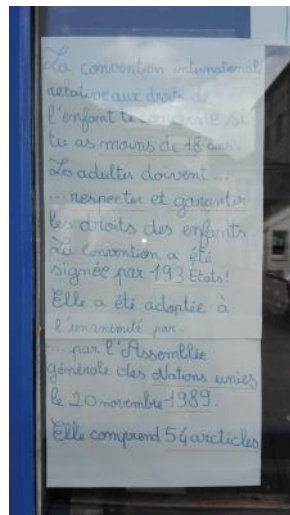 La convention international
relative aux droits de
l'enfant te concerne si
tu as moins de 18 ans.
Les adultes doivent...
...respecter et garantir
les droits des enfants.
La convention a été
signée par 193 Etats!
Elle a été adoptée à
l'unanimité par-
... par l'Assemblée
générale des Nations unies
le 20 novembre 1989.
Elle comprend 54 arcticles